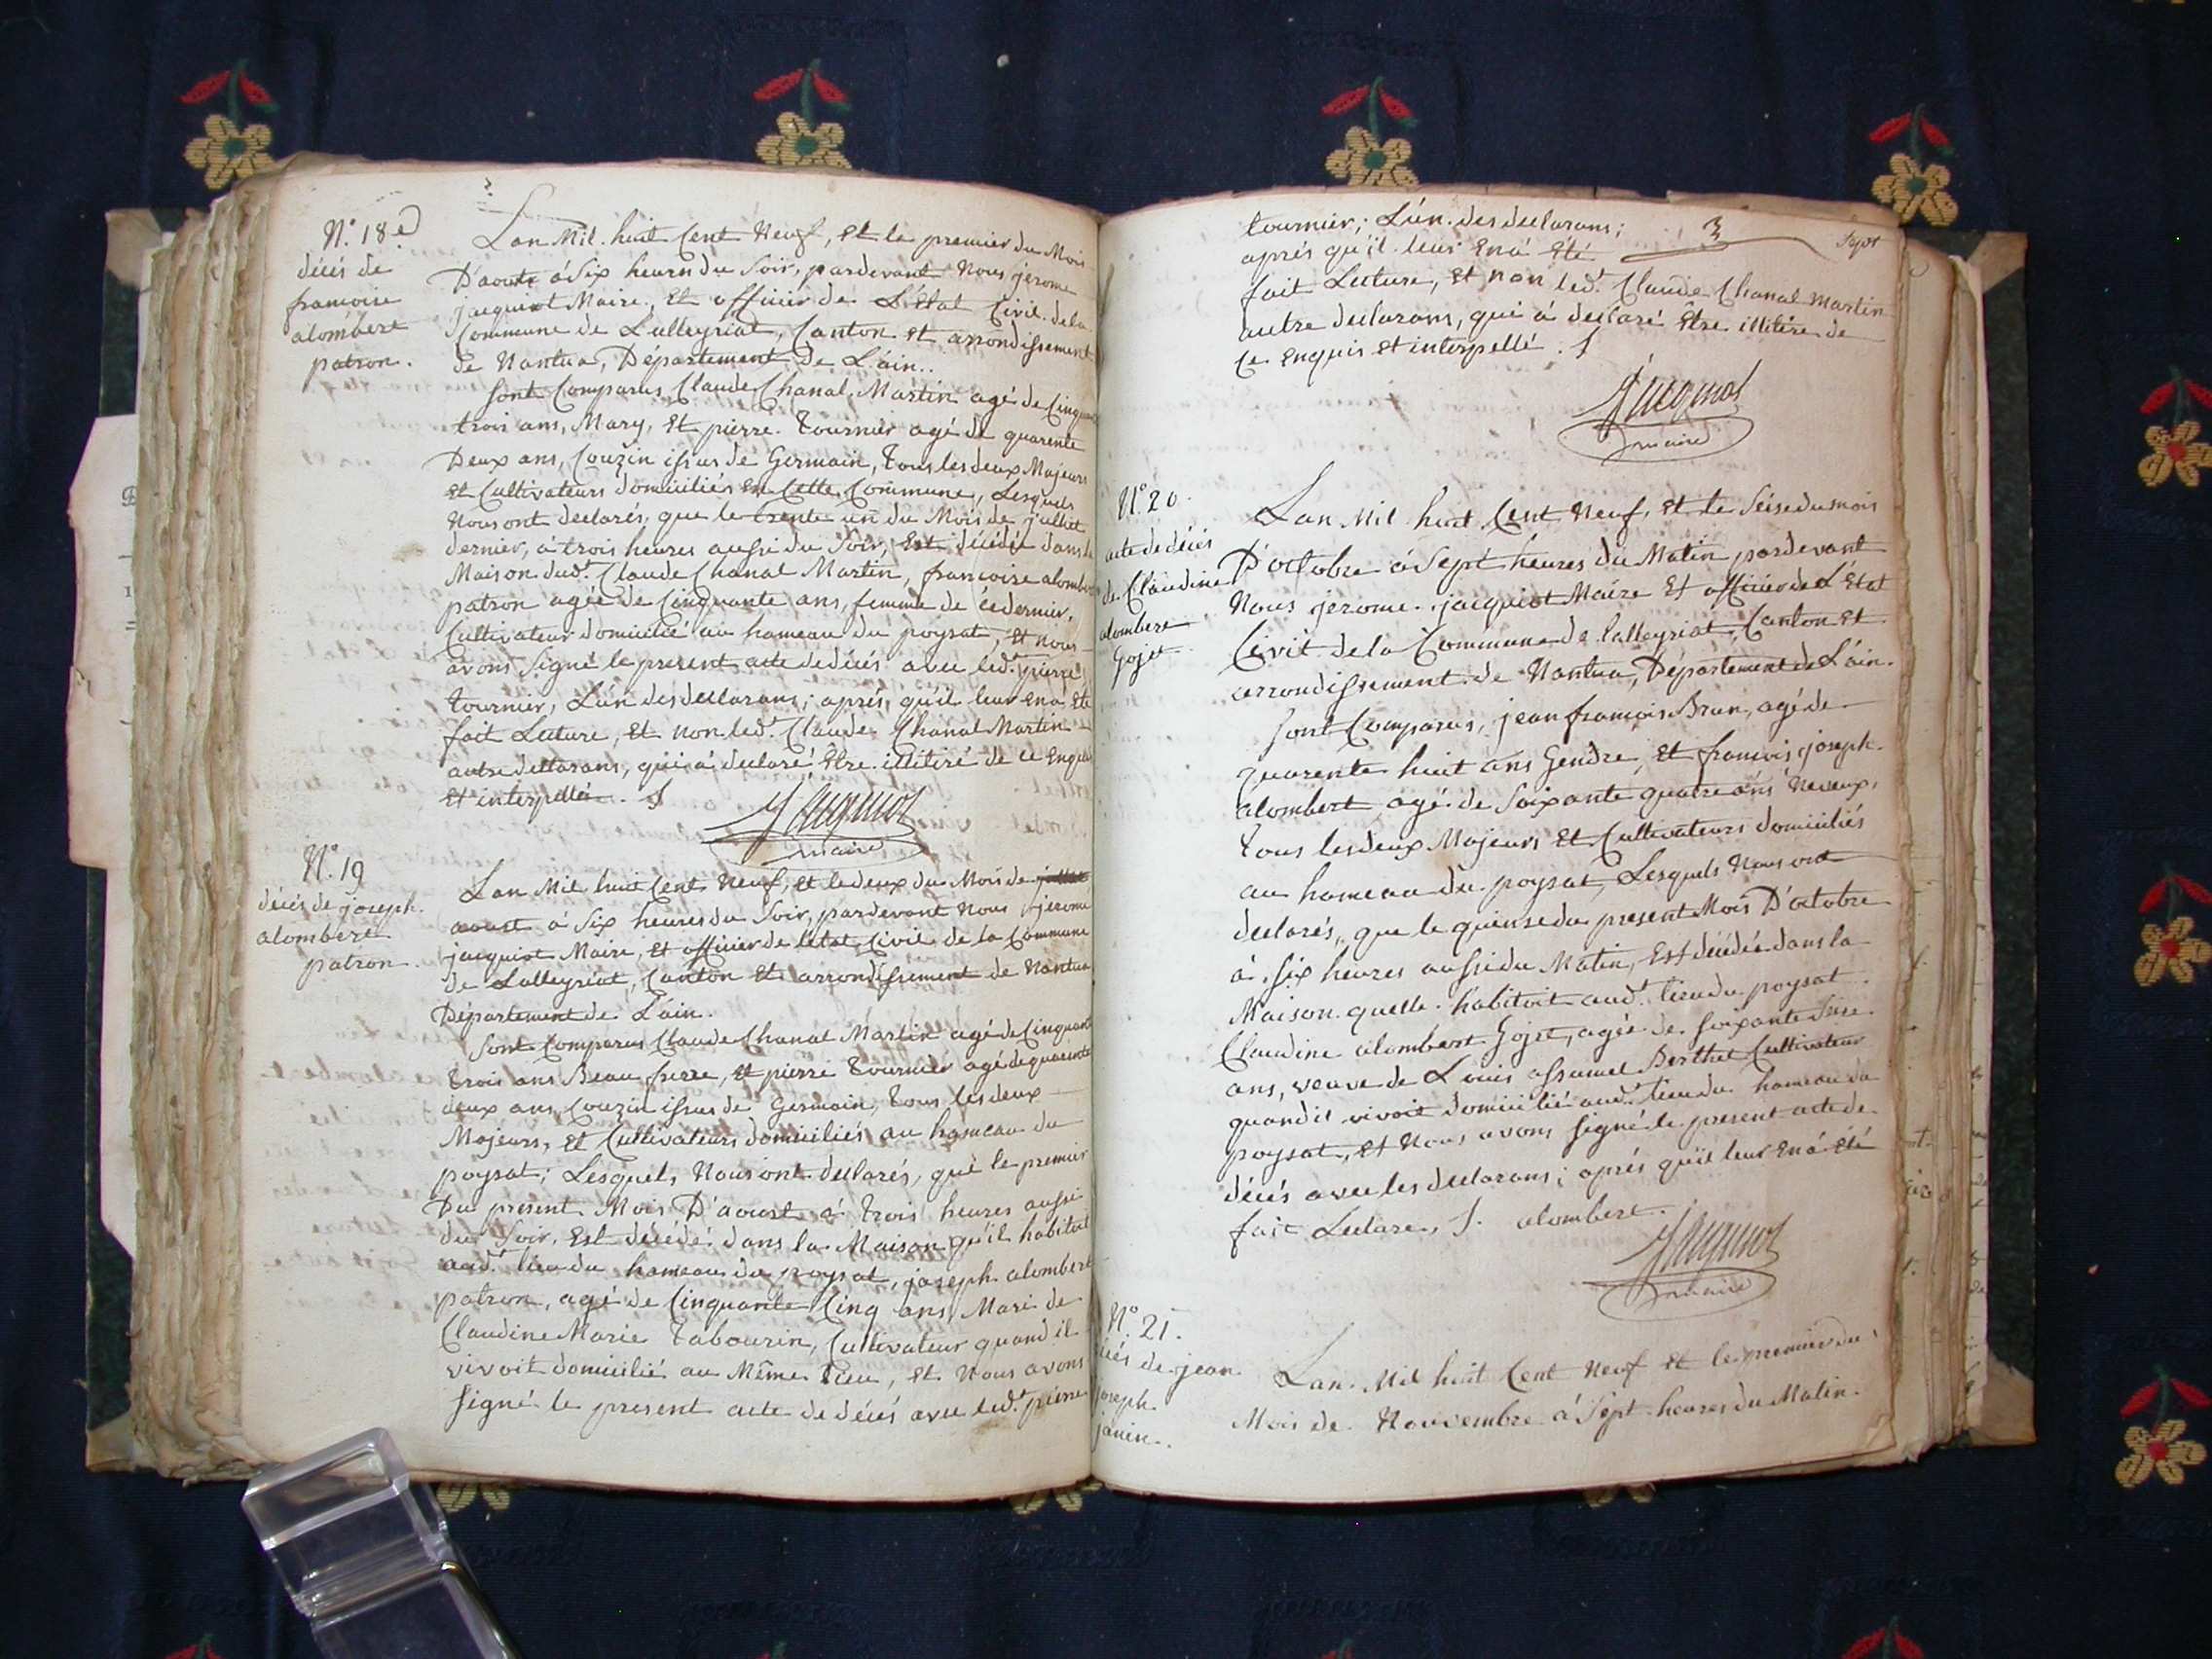 N.º 18.e
décés de
francoise
alombert
patron.
Lan Mil huit Cent Neuf, et le premier du Mois
D'aoust à Six heures du Soir, pardevant Nous jerome
jacquiot Maire, Et officier de L'Etat Civil de la
Commune de Lalleyriat, Canton et arrondissement
de Nantua, Département de L'ain..
Sont Comparus Claude Chanal Martin agé de Cinquante
trois ans, Mary, Et pierre Tournier agé de quarente
Deux ans, Couzin issus de Germain, tous les deux Majeurs
Et Cultivateurs domiciliés en Cette Commune, Lesquels
Nous ont declarés, que le trente un du Mois de juillet
dernier, à trois heures aussi du Soir, Est décédée dans la
Maison dud.t Claude Chanal Martin, francoise alombert
patron agée de Cinquante ans, femme de ce dernier,
Cultivateur domicilié au hameau du poysat, et nous
avons Signé le present acte de décés avec led.t pierre
tournier, L'un des declarans; aprés, qu'il leur en a Eté
fait Lecture, Et non led.t Claude Chanal Martin
autre declarans, qui à declaré Etre illitiré de ce Enquis
Et interpellé. J
Jacquiot
maire
N.º 19
décés de joseph
alombert
patron.
Lan Mil huit Cent Neuf, et le deux du Mois de
aoust à Six heures du Soir, pardevant Nous jerome
jacquiot Maire, Et officier de letat Civil de la Commune
de Lalleyriat, Canton Et arrondissement de Nantua
Département de L'ain.
Sont Comparus Claude Chanal Martin agé de Cinquante
trois ans Beau frere, et pierre Tournier agé de quarente
deux ans, Couzin issus de Germain, tous les deux
Majeurs, Et Cultivateurs domiciliés au hameau du
poysat; Lesquels Nous ont declarés, que le premier
Du present Mois D'aoust à trois heures aussi
du Soir, Est décédé dans la Maison qu'il habitoit
aud.t lieu du hameau du poysat, joseph alombert
patron, agé de Cinquante Cinq ans, Mari de
Claudine Marie Tabourin, Cultivateur quand il
vivoit domicilié au Même Lieu, et Nous avons
Signé le present acte de décés avec led.t pierre
tournier; L'un des declarans;
aprés qu'il leur En à Eté
fait Lecture, Et non led.t Claude Chanal Martin
autre declarans, qui à declaré Etre illitére de
Ce Enquis et interpellé. J
3
Sept
Jacquiot
maire
N.º 20.
acte de décés
de Claudine
alombert
Gojet
Lan Mil huit Cent Neuf, Et le Seise du mois
D'octobre à Sept heures du Matin pardevant
Nous jerome jacquiot Maire Et officier de L'Etat
Civil de la Commune de lalleyriat, Canton Et
arrondissement de Nantua, Département de L'ain.
Sont Comparus, jean francois Brun, agé de
quarente huit ans Gendre, Et francois joseph
alombert agé de Soixante quatre ans Neveux,
tous les deux Majeurs Et Cultivateurs domiciliés
au hameau du poysat, Lesquels Nous ont
declarés, que le quinse du present Mois D'octobre
à Six heures aussi du Matin, Est décédée dans la
Maison quelle habitoit aud.t lieu du poysat
Claudine alombert Gojet, agée de Soixante Seise
ans, veuve de Louis assumel Berthet Cultivateur
quand il vivoit domicilié aud.t lieu du hameau du
poysat, Et Nous avons Signé le present acte de
décés avec les declarans; aprés qu'il leur En à été
fait Lecture, J. alombert.
Jacquiot
maire
N.º 21.
décés de jean
joseph
janin.
Lan Mil huit Cent Neuf et le premier du
Mois de Novembre à Sept heures du Matin.